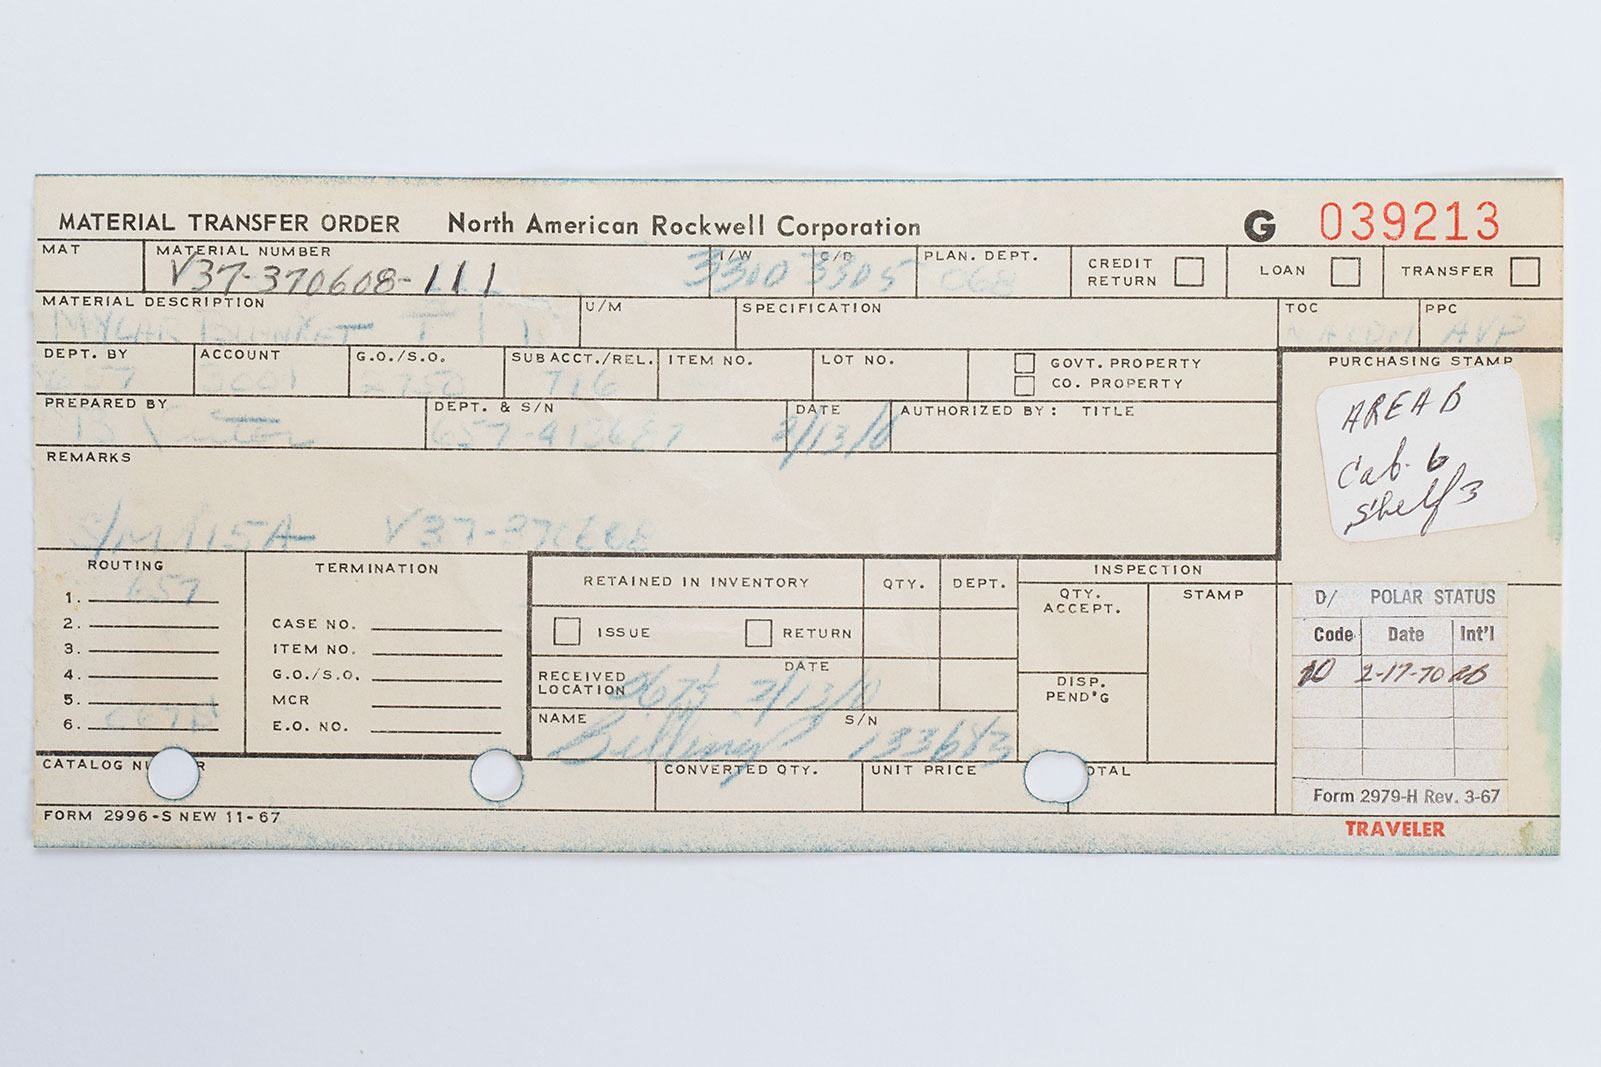 MATERIAL TRANSFER ORDER North American Rockwell Corporation G 039213
MAT MATERIAL NUMBER I/W C/D PLAN. DEPT. CREDIT RETURN LOAN TRANSFER
V37-370608-111 3300 3305 068
MATERIAL DESCRIPTION U/M SPECIFICATION TOC PPC
MYLAR BLANKET AVP
DEPT. BY ACCOUNT G.O./S.O. SUB ACCT./REL. ITEM NO. LOT NO. GOVT. PROPERTY PURCHASING STAMP
CO. PROPERTY
657 716
PREPARED BY DEPT. & S/N DATE AUTHORIZED BY: TITLE
2/13/0
AREA B
Cab. 6
Shelf 3
REMARKS
S/M 115A V37-370608
ROUTING TERMINATION RETAINED IN INVENTORY QTY. DEPT. INSPECTION
1. 657
2. CASE NO.
3. ITEM NO.
4. G.O./S.O.
5. MCR
6. E.O. NO.
ISSUE RETURN
QTY. ACCEPT. STAMP
RECEIVED LOCATION DATE
2/13/0
DISP. PEND'G
NAME S/N
133683
D/ POLAR STATUS
Code Date Int'l
10 2-17-70
Form 2979-H Rev. 3-67
CATALOG CONVERTED QTY. UNIT PRICE
FORM 2996-S NEW 11-67
TRAVELER